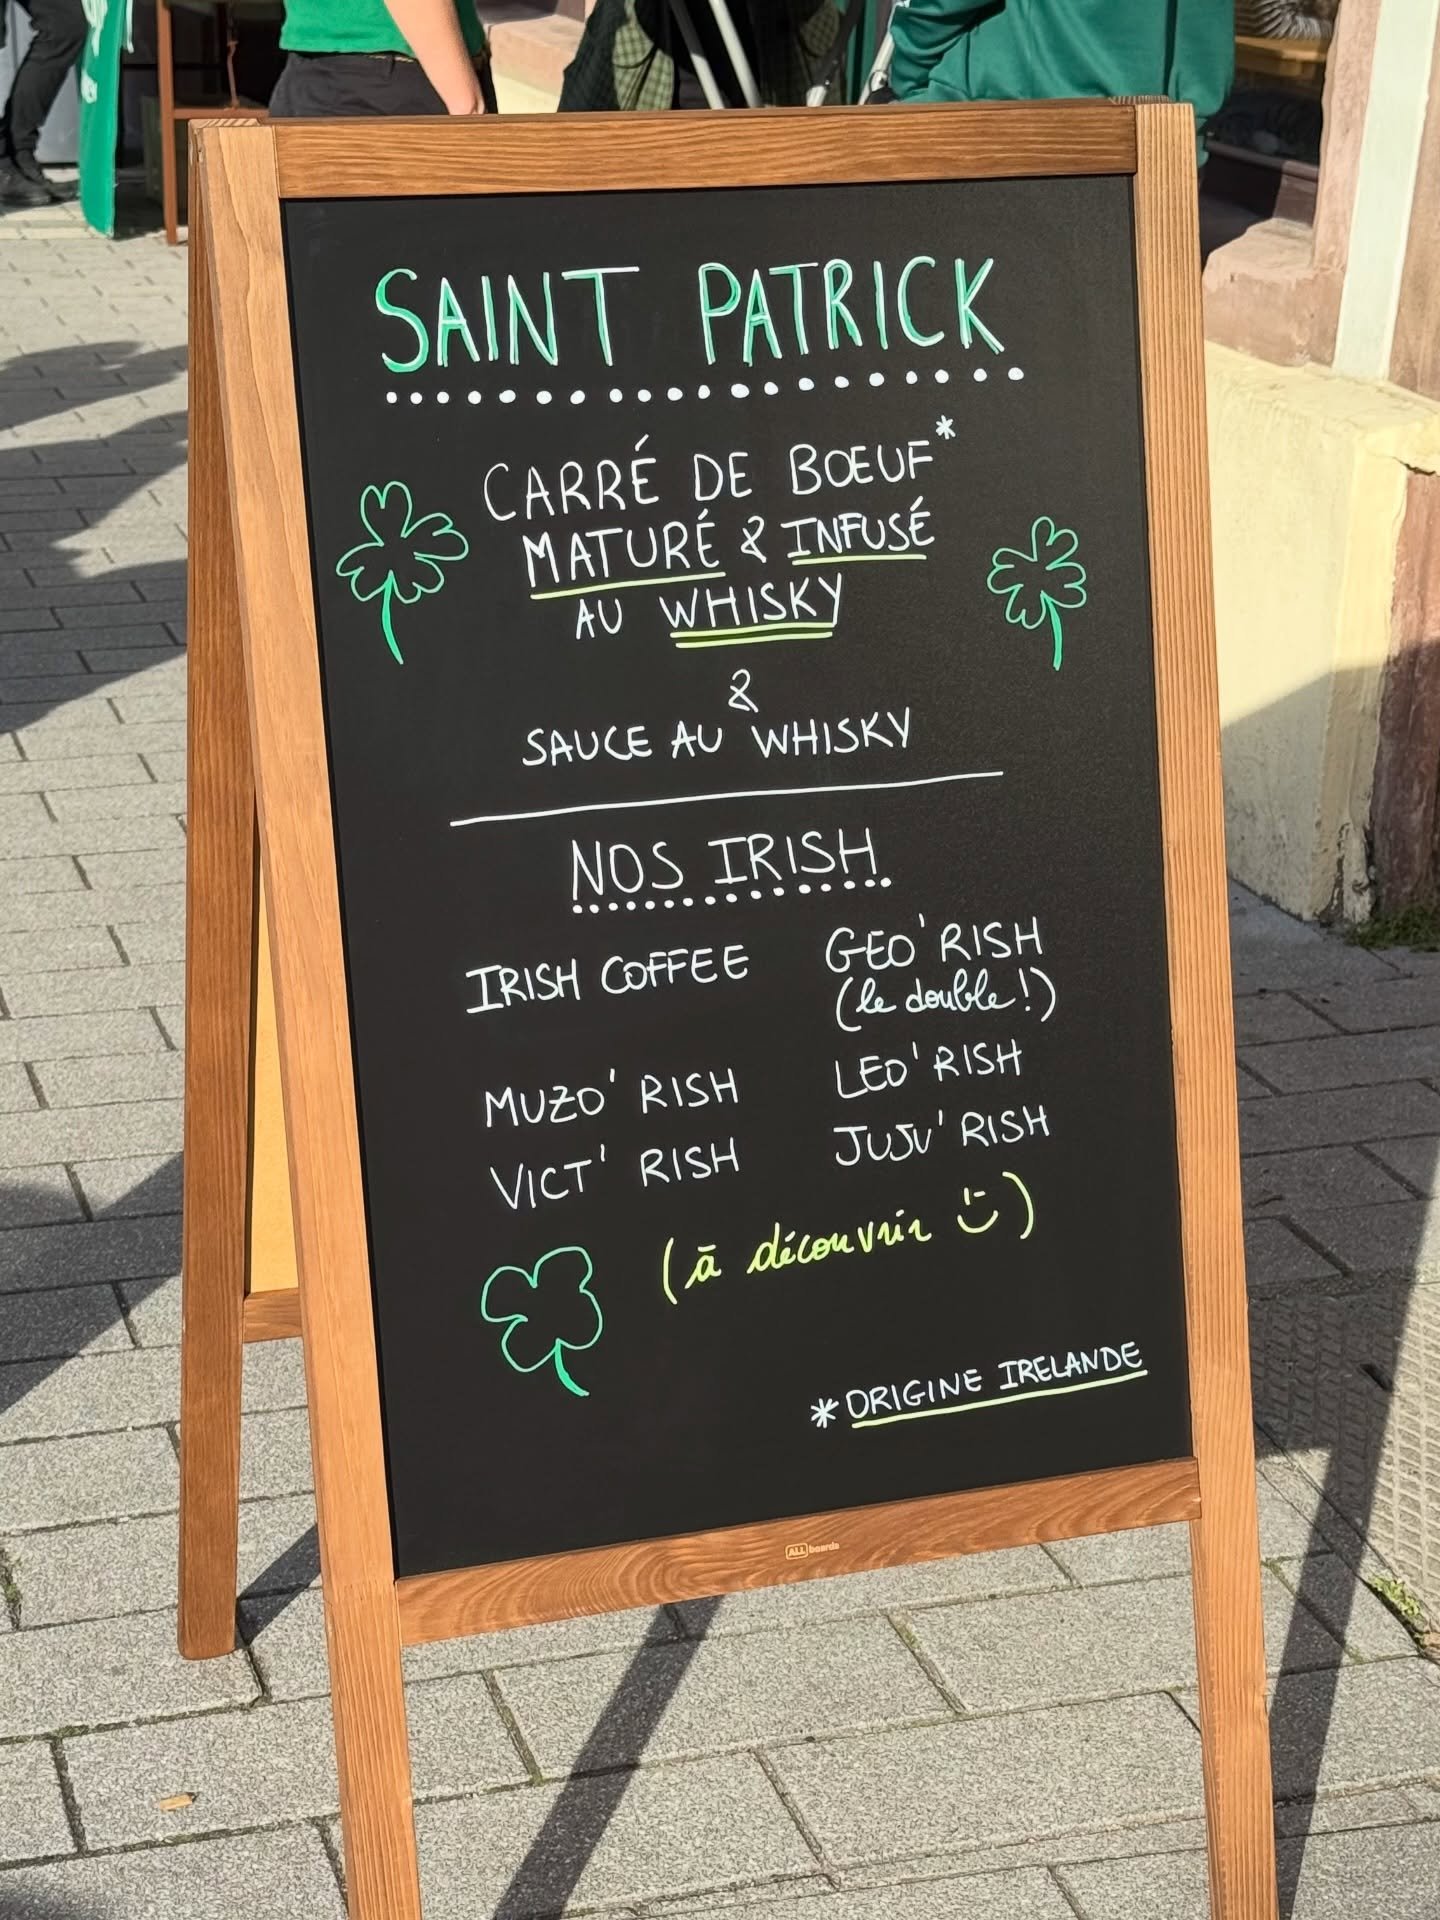 SAINT PATRICK
CARRÉ DE BŒUF*
MATURÉ & INFUSÉ
AU WHISKY
&
SAUCE AU WHISKY
NOS IRISH
IRISH COFFEE
GEO'RISH
(le double!)
MUZO'RISH
LEO'RISH
VICT'RISH
JUJU'RISH
(à découvrir :-))
*ORIGINE IRELANDE
ALL boards